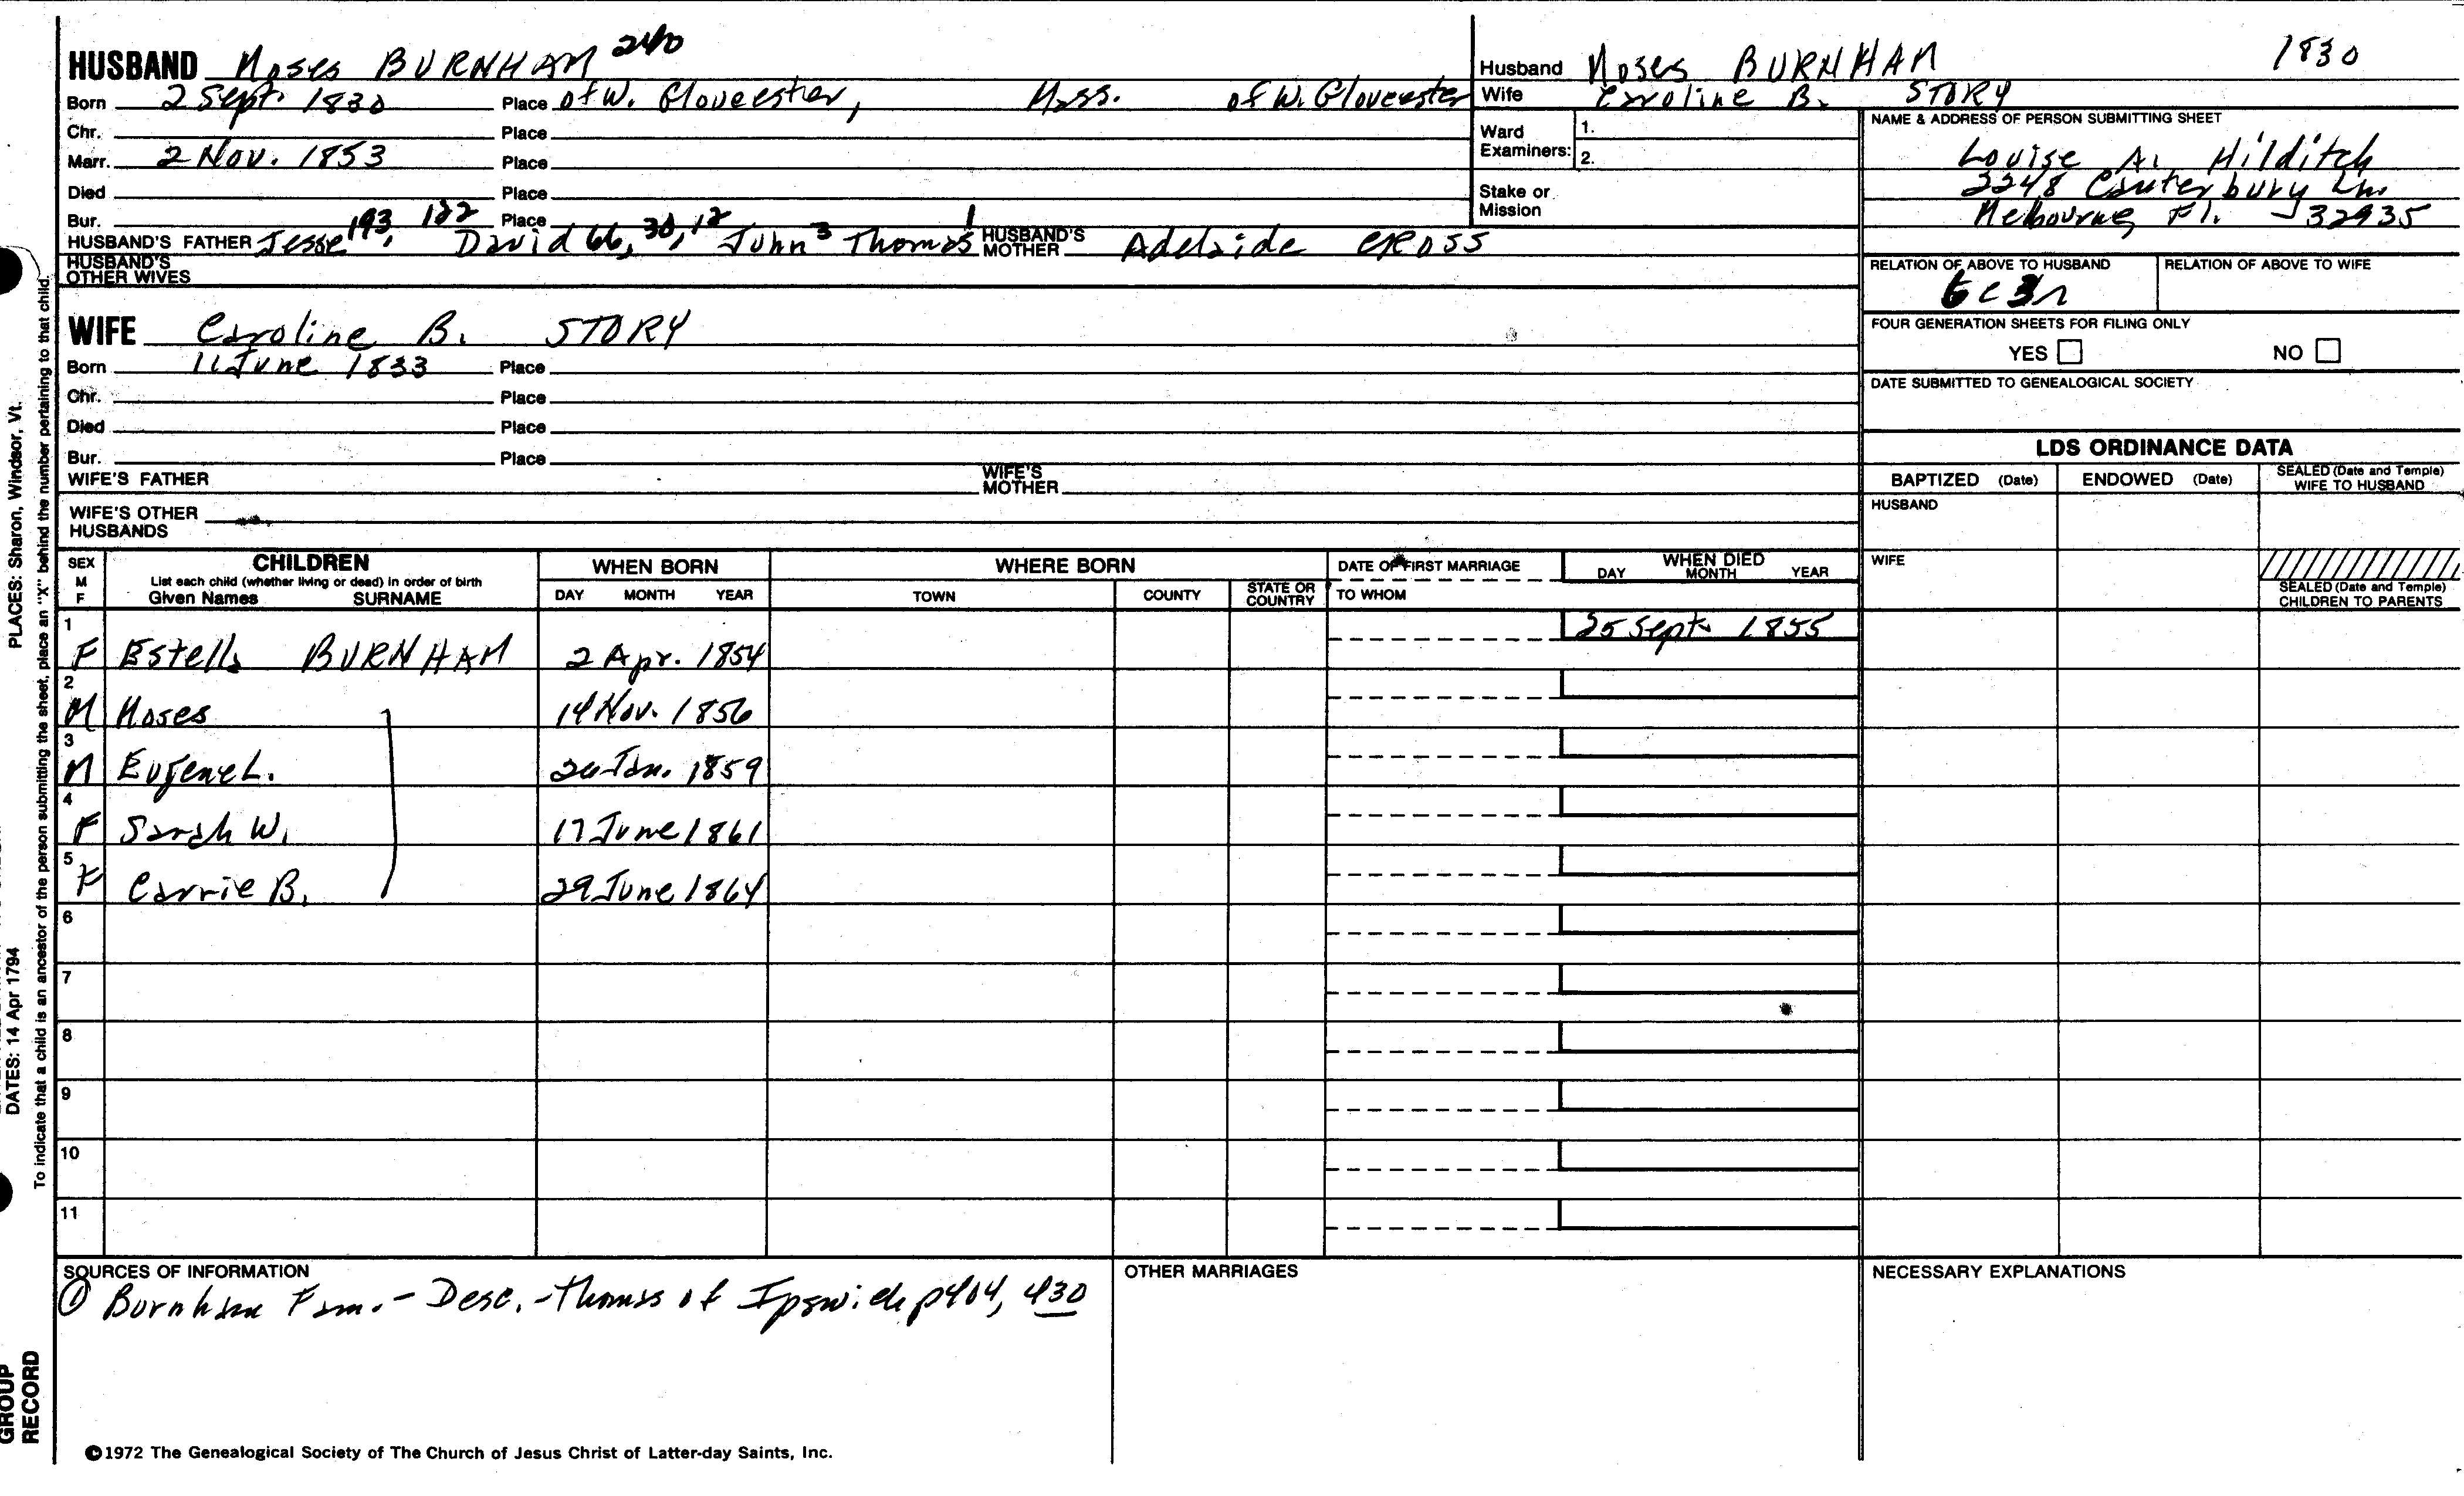 HUSBAND Moses BURNHAM 240
Born 2 Sept. 1830 Place of W. Gloucester, Mass. of W. Gloucester
Chr. Place
Marr. 2 Nov. 1853 Place
Died Place
Bur. Place
HUSBAND'S FATHER Jesse 193, 122 David 66, 30, 12 John 3 Thomas 1 HUSBAND'S MOTHER Adelaide CROSS
HUSBAND'S OTHER WIVES
Husband Moses BURNHAM 1830
Wife Caroline B. STORY
Ward Examiners: 1.
2.
Stake or Mission
NAME & ADDRESS OF PERSON SUBMITTING SHEET
Louise A. Hilditch
2248 Canterbury Ln.
Melbourne, Fl. 32935
RELATION OF ABOVE TO HUSBAND RELATION OF ABOVE TO WIFE
FOUR GENERATION SHEETS FOR FILING ONLY
YES NO
DATE SUBMITTED TO GENEALOGICAL SOCIETY
WIFE Caroline B. STORY
Born 11 June 1833 Place
Chr. Place
Died Place
Bur. Place
WIFE'S FATHER WIFE'S MOTHER
WIFE'S OTHER HUSBANDS
LDS ORDINANCE DATA
BAPTIZED (Date) ENDOWED (Date) SEALED (Date and Temple) WIFE TO HUSBAND
HUSBAND
WIFE
SEALED (Date and Temple) CHILDREN TO PARENTS
SEX M F CHILDREN WHEN BORN WHERE BORN DATE OF FIRST MARRIAGE WHEN DIED
List each child (whether living or dead) in order of birth
Given Names SURNAME DAY MONTH YEAR TOWN COUNTY STATE OR COUNTRY TO WHOM DAY MONTH YEAR
1 F Estella BURNHAM 2 Apr. 1854 25 Sept. 1855
2 M Moses 14 Nov. 1856
3 M Eugene L. Jan. 1859
4 F Sarah W. 17 June 1861
5 F Carrie B. 29 June 1864
6
7
8
9
10
11
SOURCES OF INFORMATION
① Burnham Fam. - Desc. - Thomas of Ipswich p404, 430
OTHER MARRIAGES
NECESSARY EXPLANATIONS
©1972 The Genealogical Society of The Church of Jesus Christ of Latter-day Saints, Inc.
PLACES: Sharon, Windsor, Vt.
DATES: 14 Apr 1794
To indicate that a child is an ancestor of the person submitting the sheet, place an "X" behind the number pertaining to that child.
GROUP
RECORD